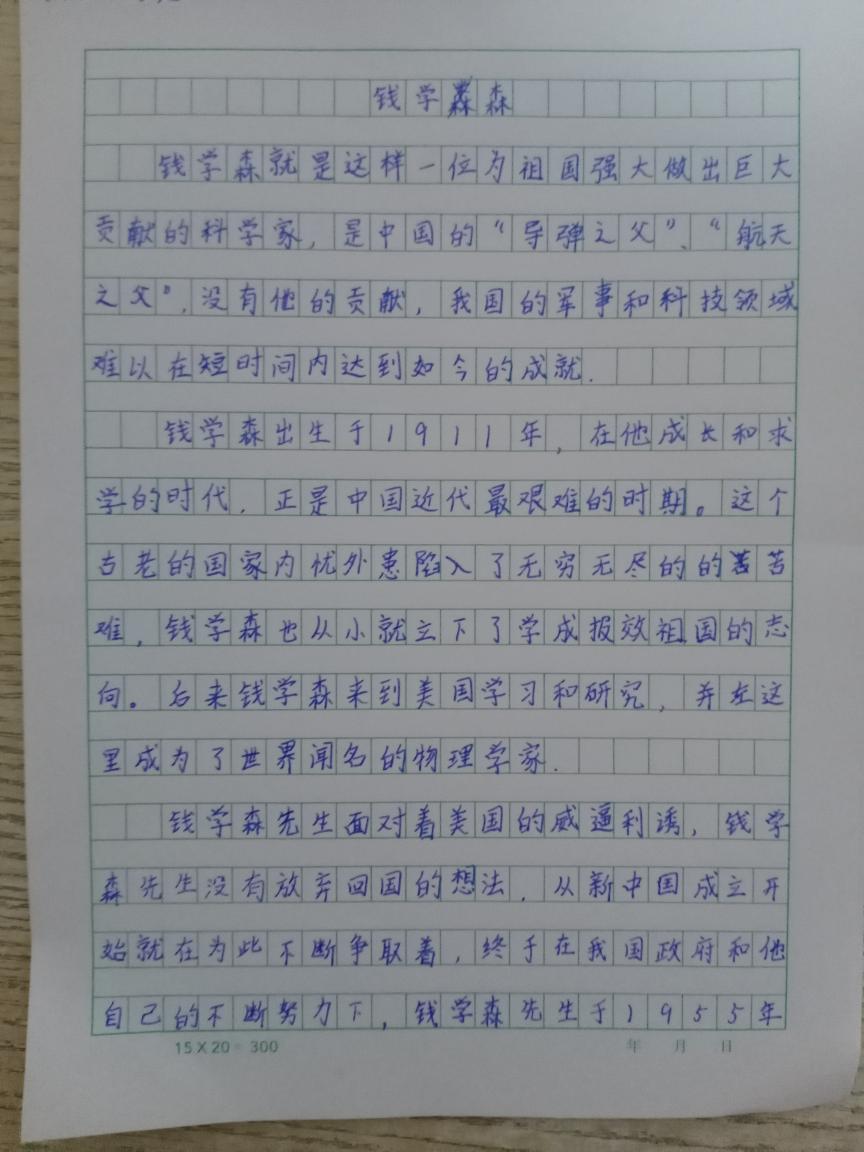 钱学森
钱学森就是这样一位为祖国强大做出巨大
贡献的科学家，是中国的“导弹之父”、“航天
之父”，没有他的贡献，我国的军事和科技领域
难以在短时间内达到如今的成就.
钱学森出生于1911年，在他成长和求
学的时代，正是中国近代最艰难的时期。这个
古老的国家内忧外患陷入了无穷无尽的的苦
难，钱学森也从小就立下了学成报效祖国的志
向。后来钱学森来到美国学习和研究，并在这
里成为了世界闻名的物理学家.
钱学森先生面对着美国的威逼利诱，钱学
森先生没有放弃回国的想法，从新中国成立开
始就在为此不断争取着，终于在我国政府和他
自己的不断努力下，钱学森先生于1955年
15×20=300 年 月 日